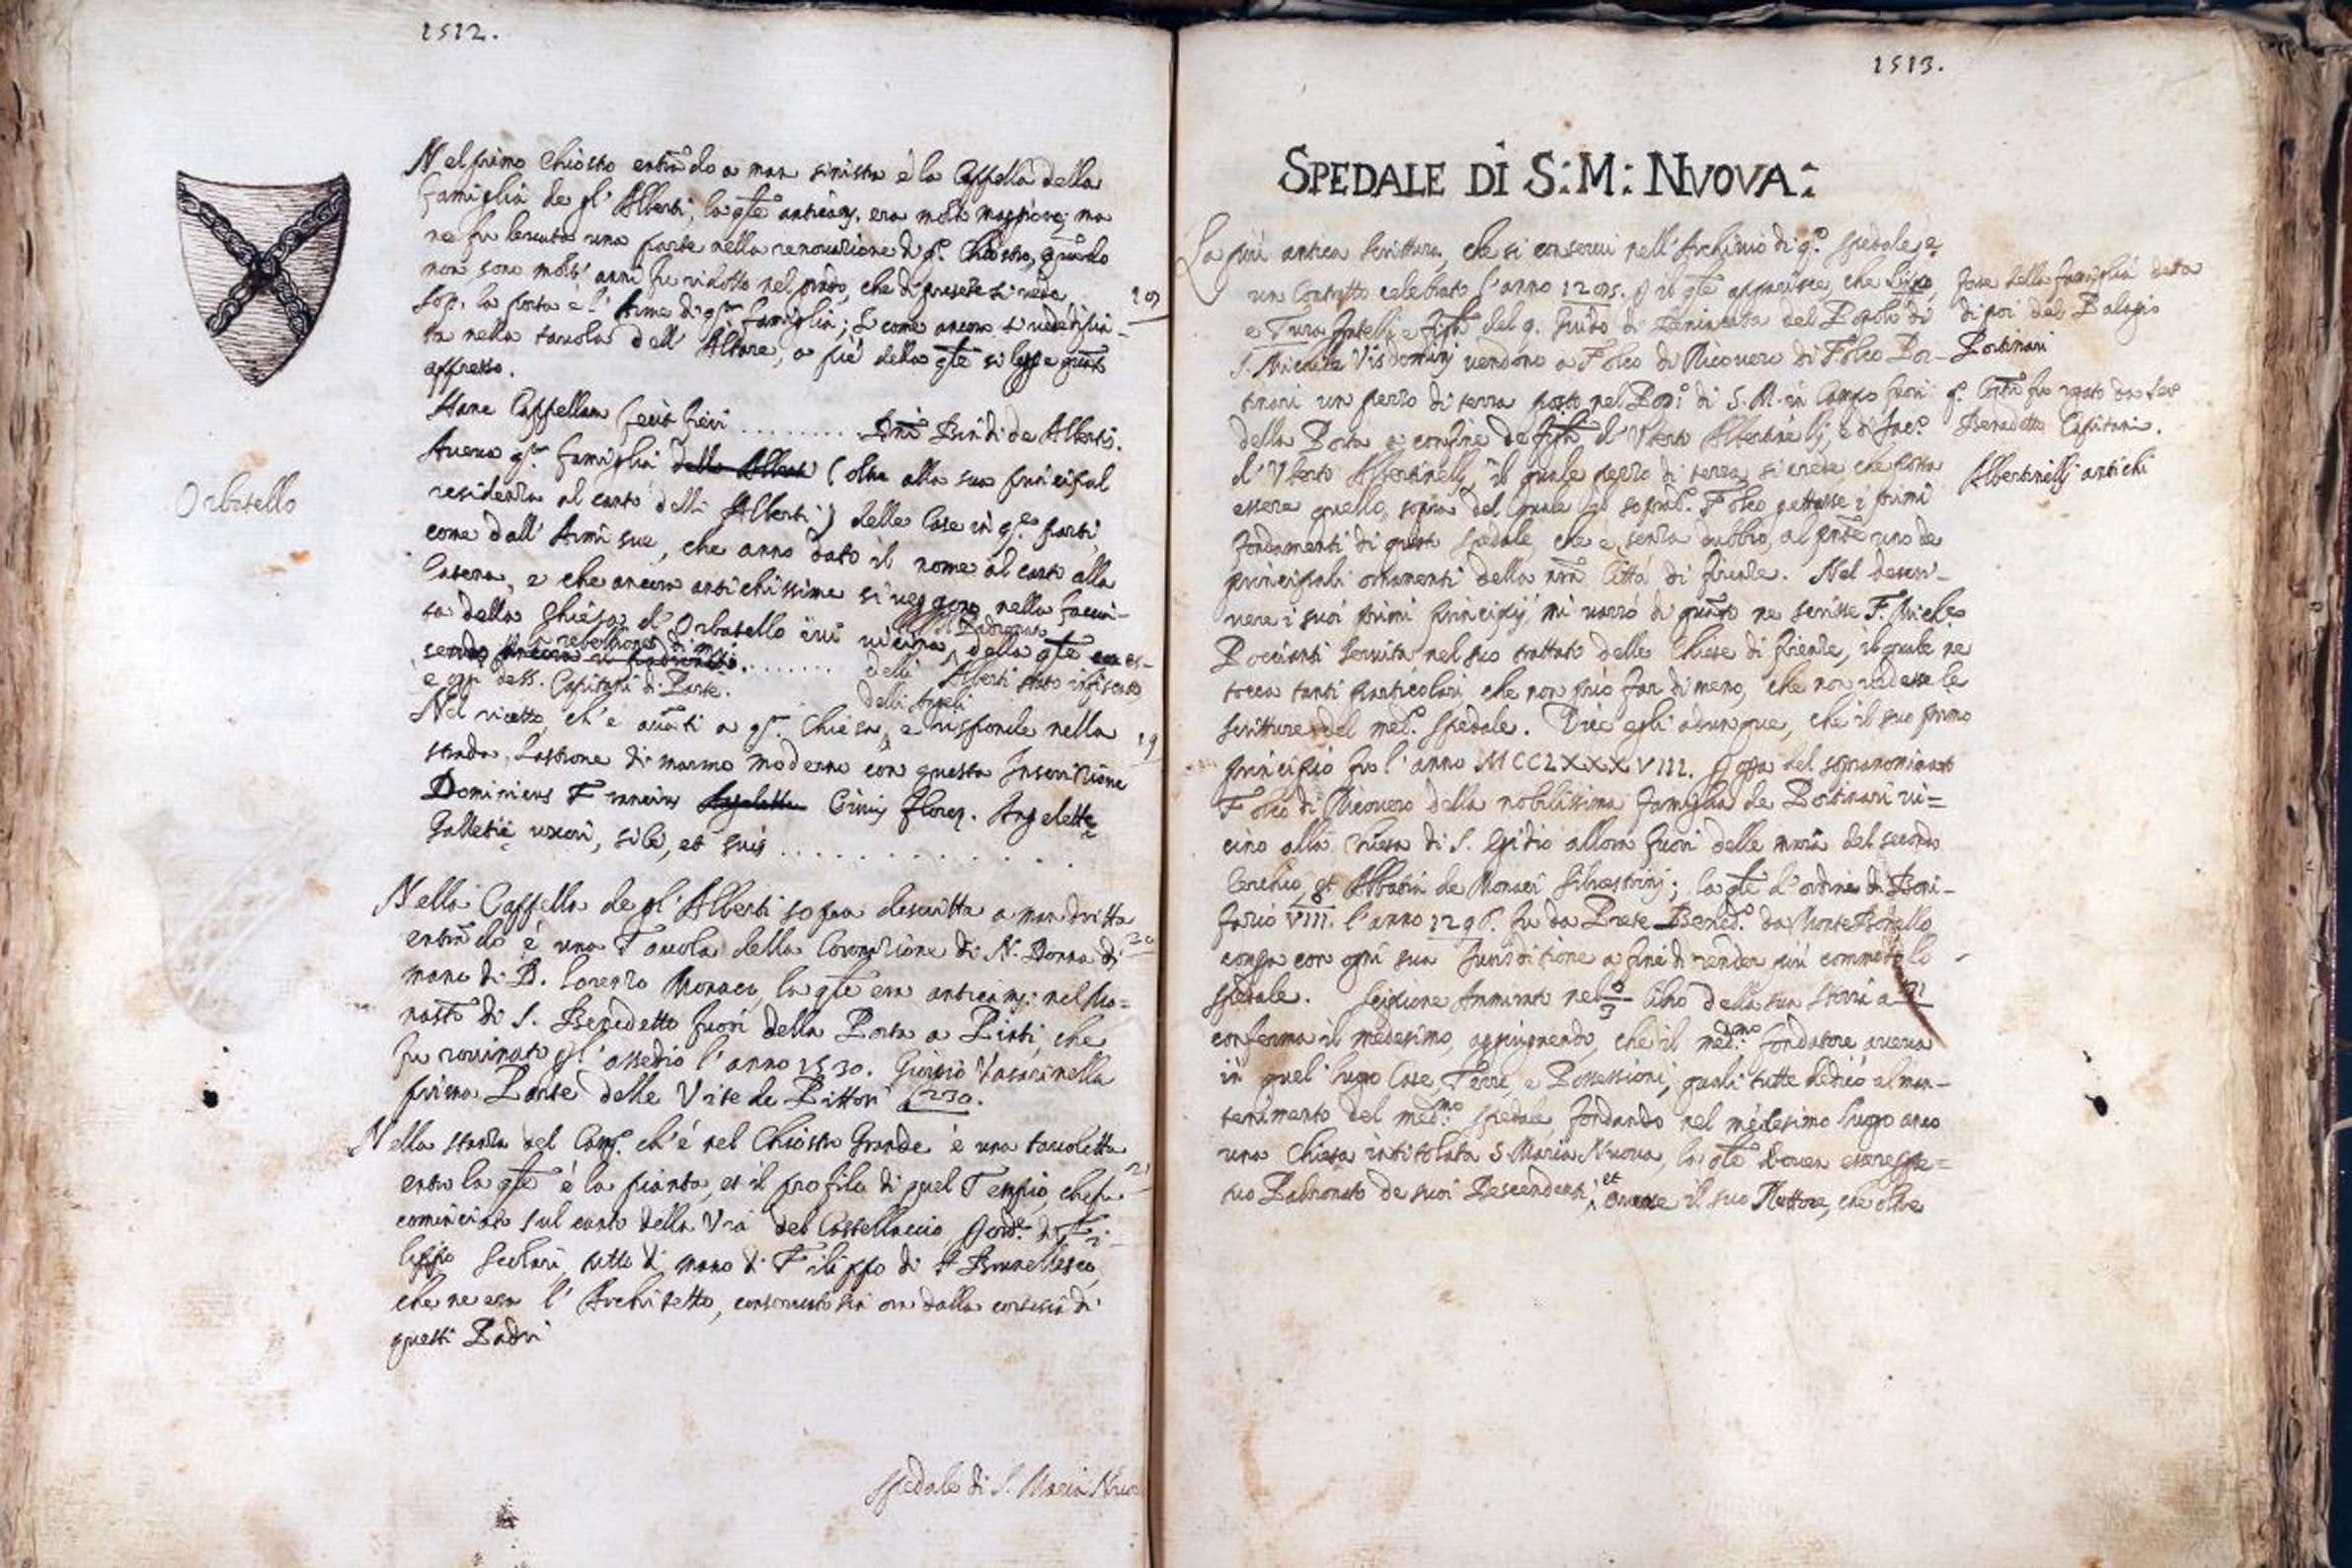 1512.
Nel primo Chiostro entrādo a man sinista è la Cappella della
famiglia de gl' Alberti, la qlē anticam. era molto maggiore; ma
ne fu levata una parte nella renovazione di q.º Chiostro, quādo
non sono molti anni fu ridotto nel modo, che di presete si vede
sop. la porta è l' Arme di q.sta famiglia; si come ancora si vede
ta nella tavola dell' Altare, a piè della qlē si legge
appresso.
Hanc Cappellam fecit fieri ......... Bindi de Albertis.
Aveva q.sta famiglia delli Alberti (oltre alla sua principal
residenza al canto delli Alberti) delle Case in q.ste parti,
come dall' Armi sue, che anno dato il nome al canto alla
Catena, e che ancora antichissime si veggono nella facci-
ta della Chiesa d' Orbatello ivi vicina della qlē es-
rebellione di
il Padronato
delli Alberti stato
e oggi dess. Capitani di Parte.
delli Angeli
Nel ricetto, ch' è avāti a q.sta Chiesa, e risponde nella
strada, Lastrone di marmo moderno con questa Inscrizione
Dominicus Francius Civis floren. Angelette
Galletie uxori, sibi, et suis ............
Nella Cappella de gl' Alberti sopra descritta a man dritta
entrādo è una Tavola della Coronazione di N. Donna di
mano di D. Lorenzo Monaco, la qlē era anticam: nel Mo=
nastº di S. Benedetto fuori della Porta a Pinti, che
fu rovinato p l' assedio l' anno 1530. Giorgio Vasari nella
prima Parte delle Vite de Pittori 230.
Nella stanza del Cam. ch' è nel Chiostro Grande è una tavoletta
entro la qlē è la pianta, et il profilo di quel Tempio, che fu
cominciato sul canto della Via del Castellaccio, p ord.e di Fi-
lippo Scolari, tutto di mano di Filippo di Brunellesco,
che ne era l' Architetto, conservato sin ora dalla cortesia di
questi Padri
Orbatello
19
20
21
Spedale di S. Maria Nuov
1513.
SPEDALE DI S: M: NVOVA:
La più antica scrittura, che si conservi nell' Archivio di q.º spedale, è
un Contratto celebrato l' anno 1285. p il qlē apparisce, che
e Tura fratelli e figli del q. Guido di del Popolo di
S. Michele Visdomini vendono a Folco di Ricovero di Folco Por-
tinari un pezzo di terra posto nel Pop: di S. M. in Campo fuori
della Porta a confine de figli d' Uberto Albertinelli, e di Jac.º
d' Uberto Albertinelli, il quale pezzo di terra si crede che possa
essere quello, sopra del quale il soprad. Folco gettasse i primi
fondamenti di questo spedale, che è senza dubbio, al prnte uno de
principali ornamenti della nrā Città di firenze. Nel descri-
vere i suoi primi principij, mi varrò di quāto ne scrisse F. Michele
Poccianti Servita nel suo trattato delle Chiese di firenze, il quale ne
tocca tanti particolari che non può far di meno, che non vedesse le
scritture del med. spedale. Dice egli adunque, che il suo primo
principio fu l' anno MCCLXXXVIII. p opa del sopranominato
Folco di Ricovero della nobilissima famiglia de Portinari vi=
cino alla Chiesa di S. Egidio allora fuori delle mura del secondo
Cerchio, et Abbazia de Monaci Silvestrini; la qlē d' ordine di Boni-
fazio VIII. l' anno 1296. fu da Prete Bened.º da Monte Bonello
compa con ogni sua Jurisditione a fine di render più commodo lo
spedale. Scipione Ammirati nel libro della sua storia
conferma il medesimo, aggiugnendo, che il med.mo fondatore aveva
in quel lugo Case, Terre, e Possessioni, quali tutte dedicò al man-
tenimento del med.mo spedale, fondando nel medesimo lugo anco
una Chiesa intitolata S. Maria Nuova, la qlē
tuo Padronato de suoi Descendenti, et avesse il suo Rettore, che oltre
fore della famiglia detta
di poi del Palagio
Portinari
q.º Contrō fu rogato da Ser
Benedetto Capitani.
Albertinelli antichi